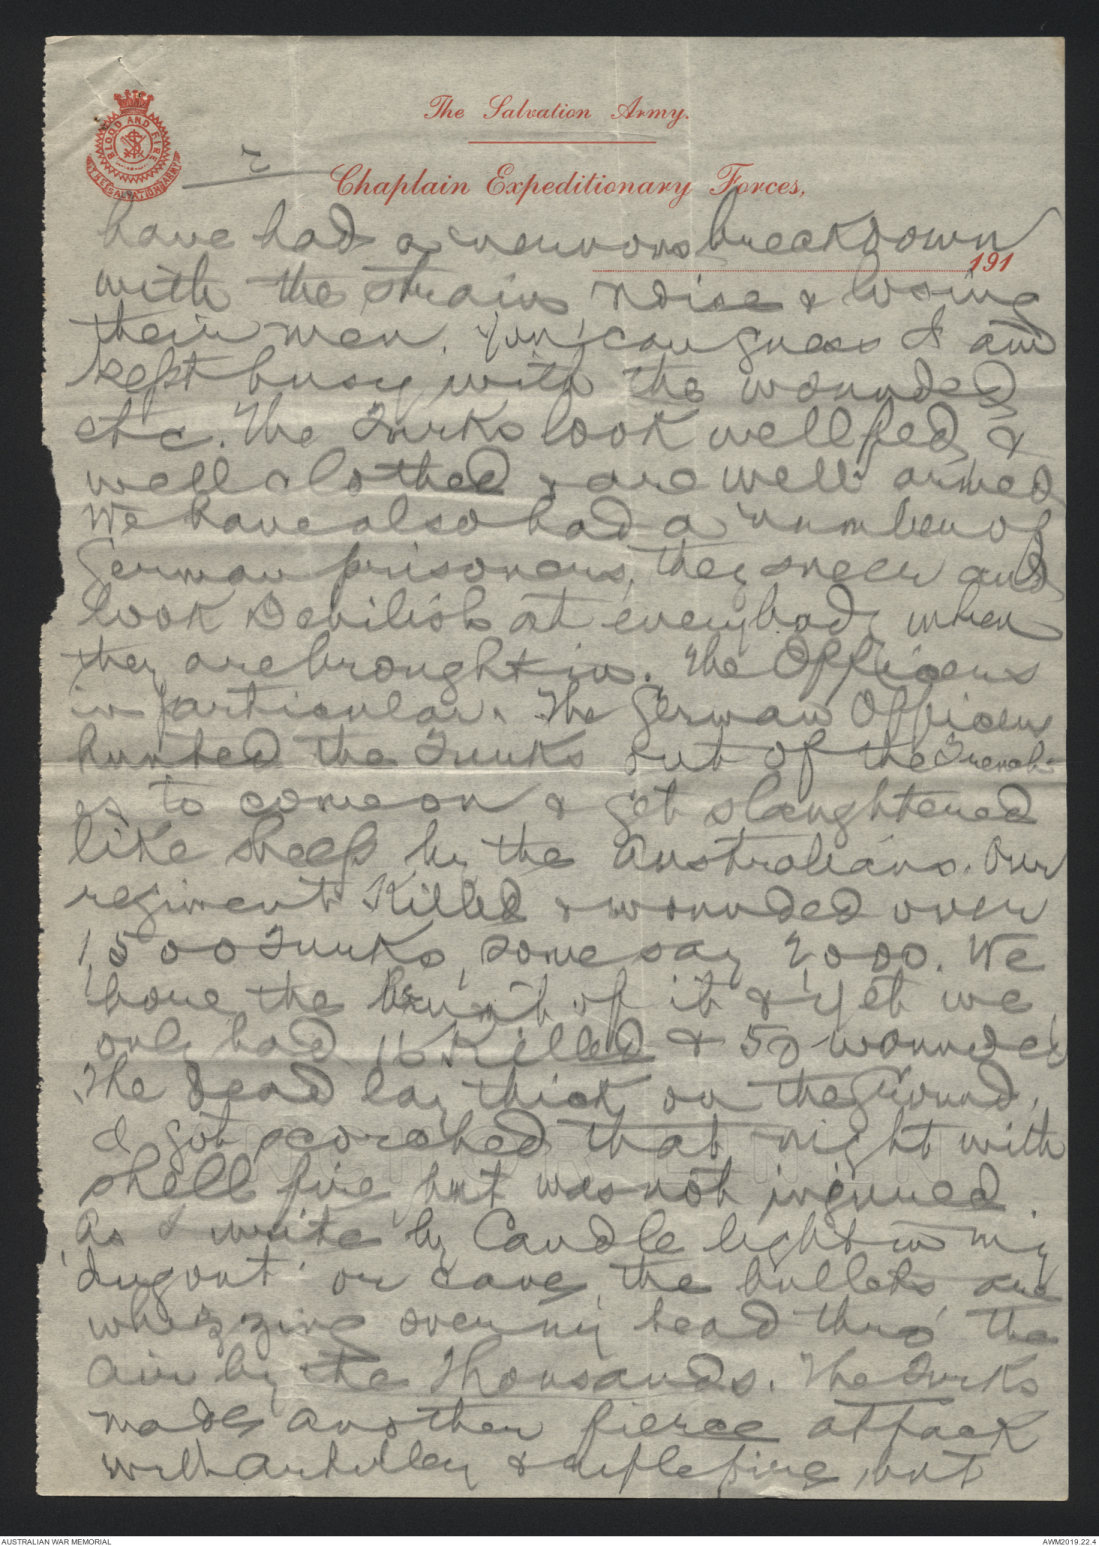 The Salvation Army.
BLOOD AND FIRE
2
Chaplain Expeditionary Forces,
191
have had a nervous breakdown
with the strain noise & losing
their men. You can guess I am
kept busy with the wounded
etc. The Turks look well fed &
well clothed & are well armed
We have also had a number of
German prisoners, they sneer and
look Devilish at everybody when
they are brought in. The Officers
in particular. The German Officers
hunted the Turks out of the Trench-
es to come on & get slaughtered
like sheep by the Australians. Our
regiment Killed & wounded over
1,500 Turks, some say 2,000. We
bore the brunt of it & yet we
only had 16 Killed & 50 wounded
The Dead lay thick on the Ground.
I got scorched that night with
shell fire but was not injured.
As I write by Candle light in my
'dugout' or cave, the bullets are
whizzing over my head thro' the
air by the Thousands. The Turks
made another fierce attack
with Artillery & rifle fire, but
AUSTRALIAN WAR MEMORIAL
AWM2019.22.4